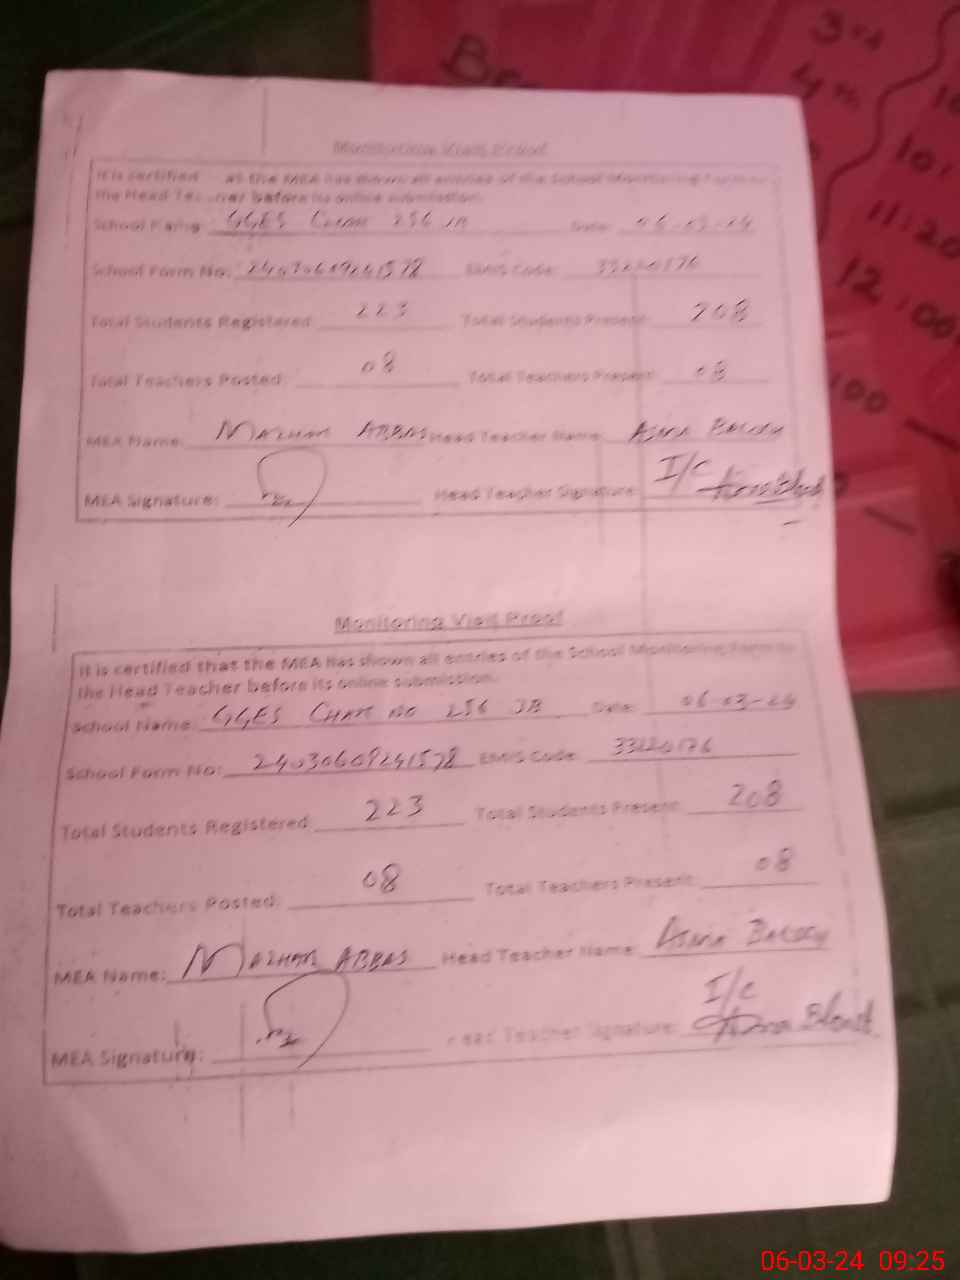 Be
3rd
4th
10:
11:20
12:00
:00
Monitoring Visit Proof
It is certified at the MEA has shown all entries of the School Monitoring Form to
the Head Teacher before its online submission.
School Name: GGES CHAK 256 JB Date: 06-03-24
School Form No: 24030609241578 EMIS Code: 33220176
Total Students Registered: 223 Total Students Present: 208
Total Teachers Posted: 08 Total Teachers Present: 08
MEA Name: MAZHAR ABBAS Head Teacher Name: ASMA
MEA Signature: Head Teacher Signature: I/C
Monitoring Visit Proof
It is certified that the MEA has shown all entries of the School Monitoring Form to
the Head Teacher before its online submission.
School Name: GGES CHAK NO 256 JB Date: 06-03-24
School Form No: 24030609241578 EMIS Code: 33220176
Total Students Registered: 223 Total Students Present: 208
Total Teachers Posted: 08 Total Teachers Present: 08
MEA Name: MAZHAR ABBAS Head Teacher Name: ASMA
MEA Signature: Head Teacher Signature: I/C
06-03-24 09:25